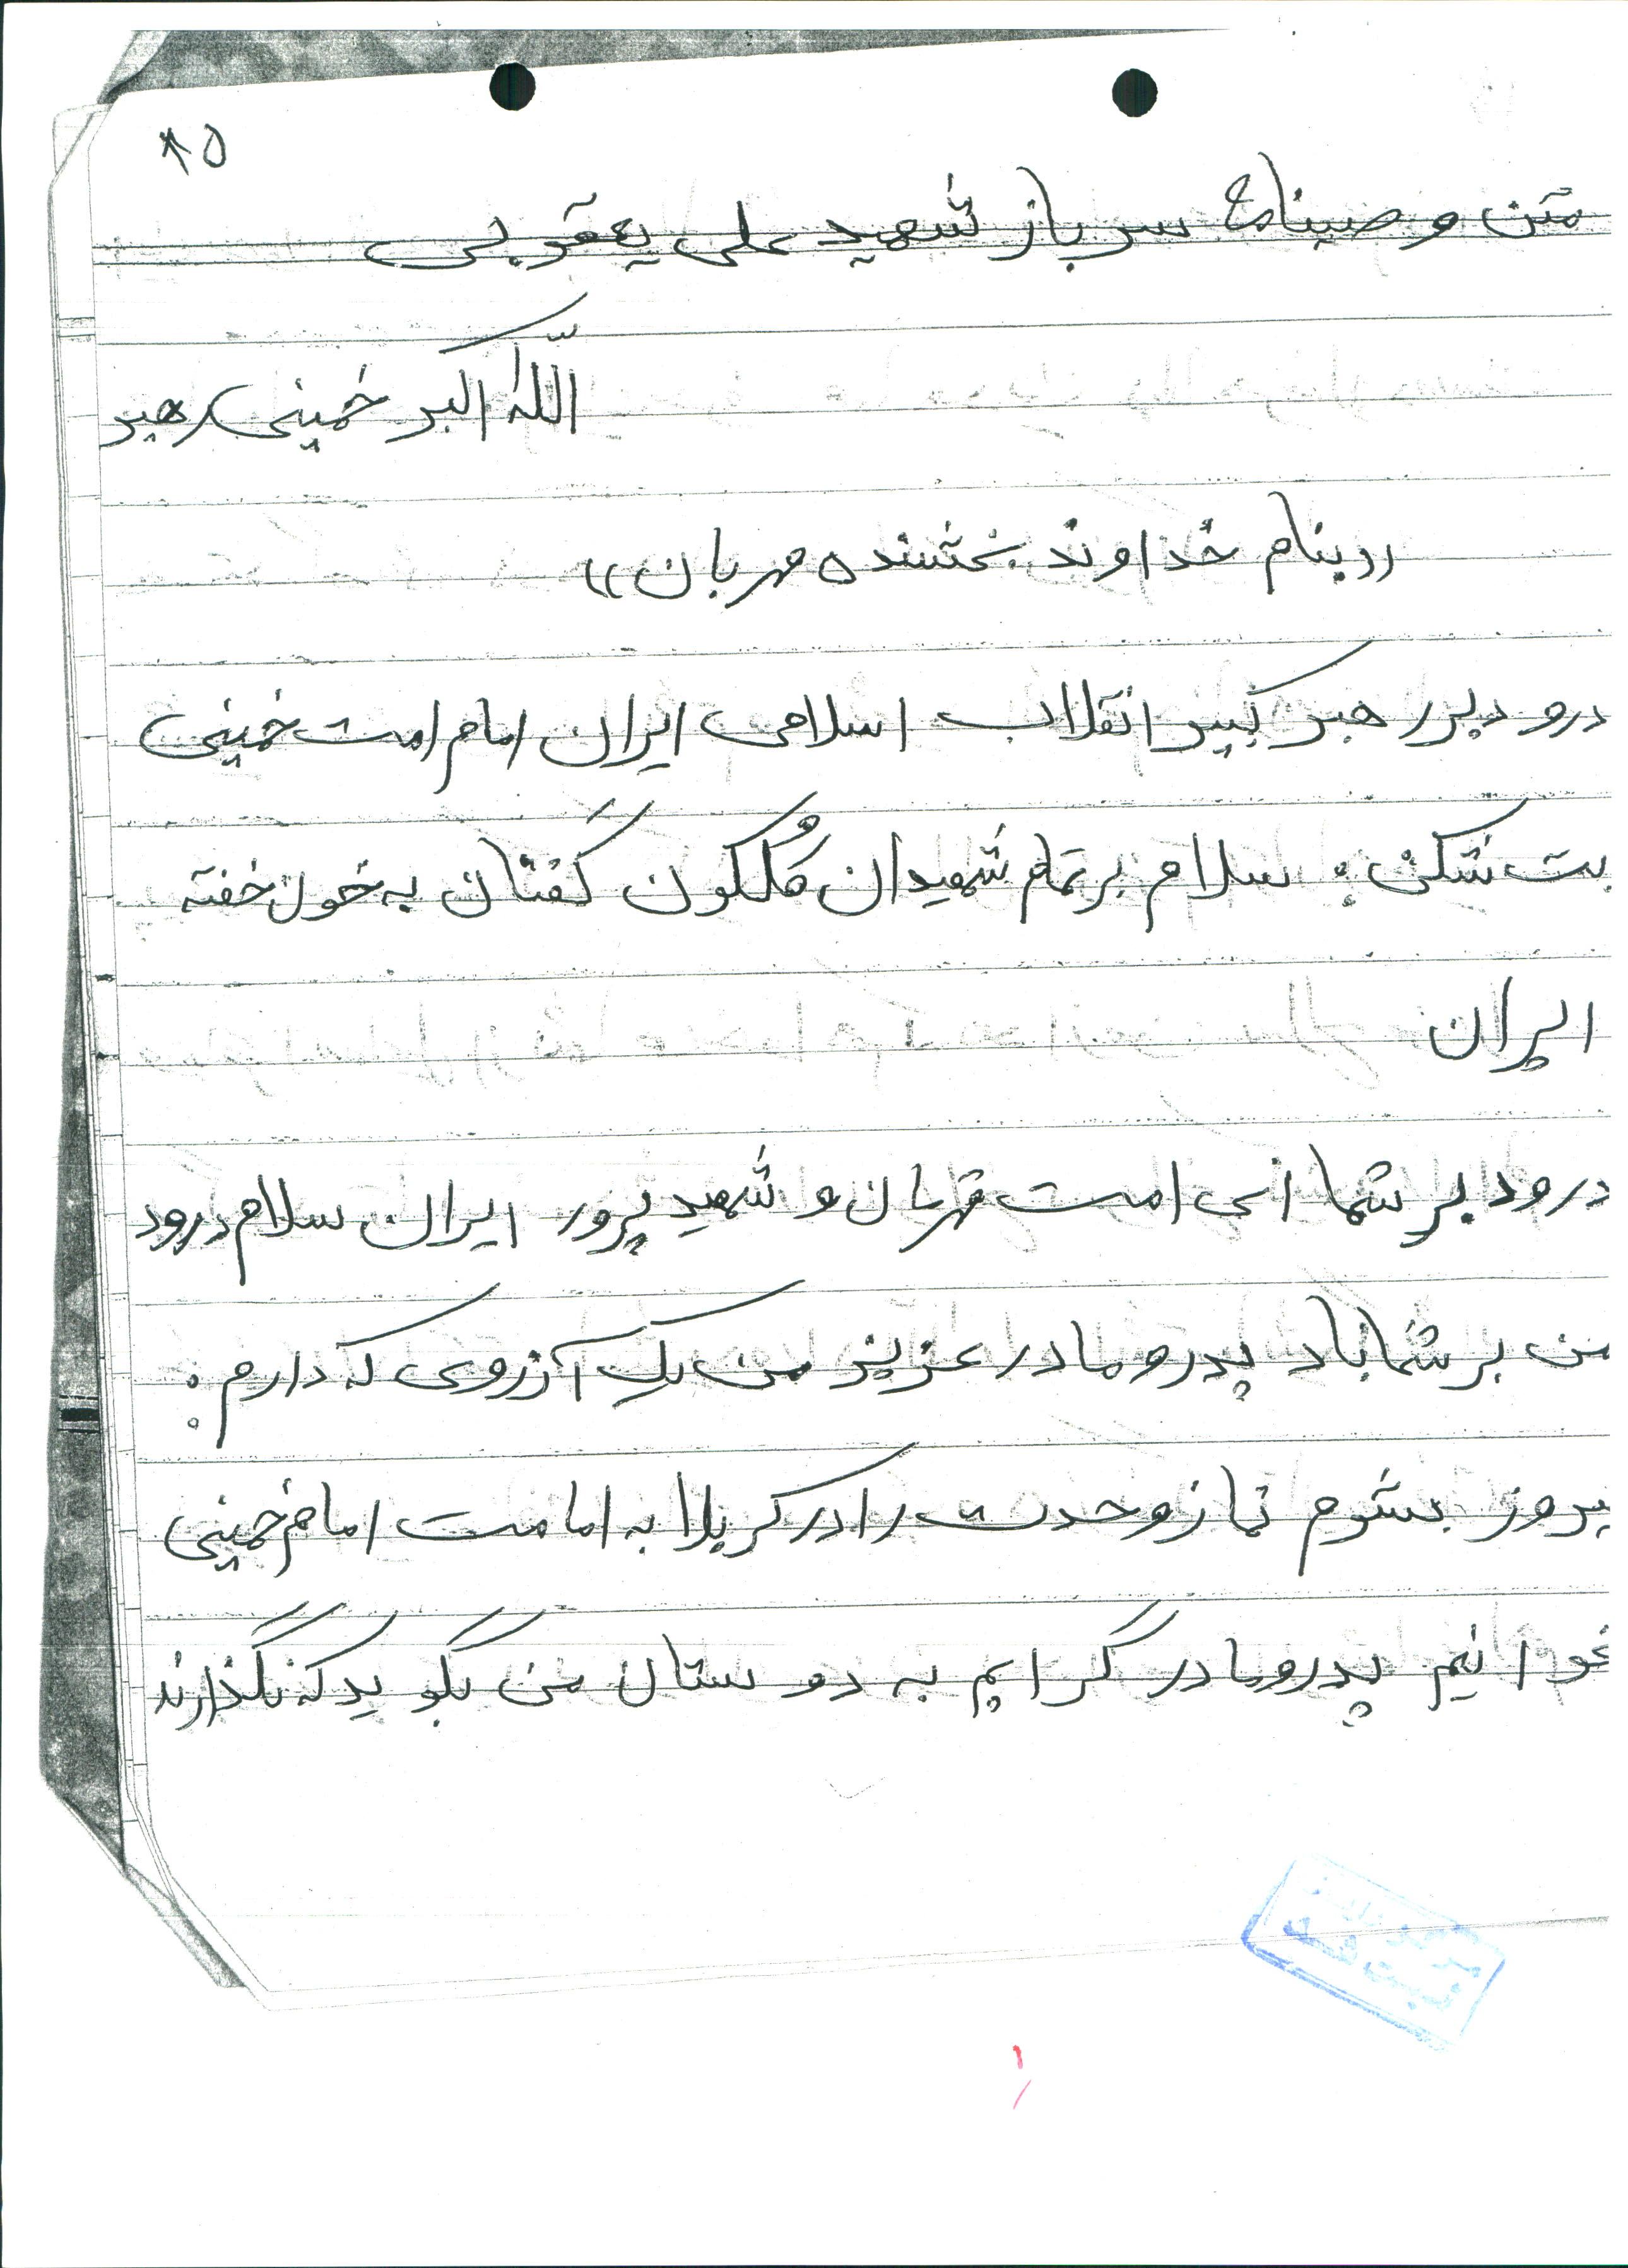 ۸۵
متن وصیتنامه سرباز شهید علی یعقوبی
اللّه اکبر خمینی رهبر
((بنام خداوند بخشنده مهربان))
درود بر رهبر کبیر انقلاب اسلامی ایران امام امت خمینی
بت شکن؛ سلام بر تمام شهیدان گلگون کفنان به خون خفته
ایران
درود بر شما ای امت قهرمان و شهید پرور ایران سلام درود
من بر شما باد پدر و مادر عزیز من یک آرزوی که دارم:
پیروز بشوم نماز وحدت را در کربلا به امامت امام خمینی
بخوانیم پدر و مادر گرایم به دوستان من بگویید که نگذارند
ثبت شد
۱